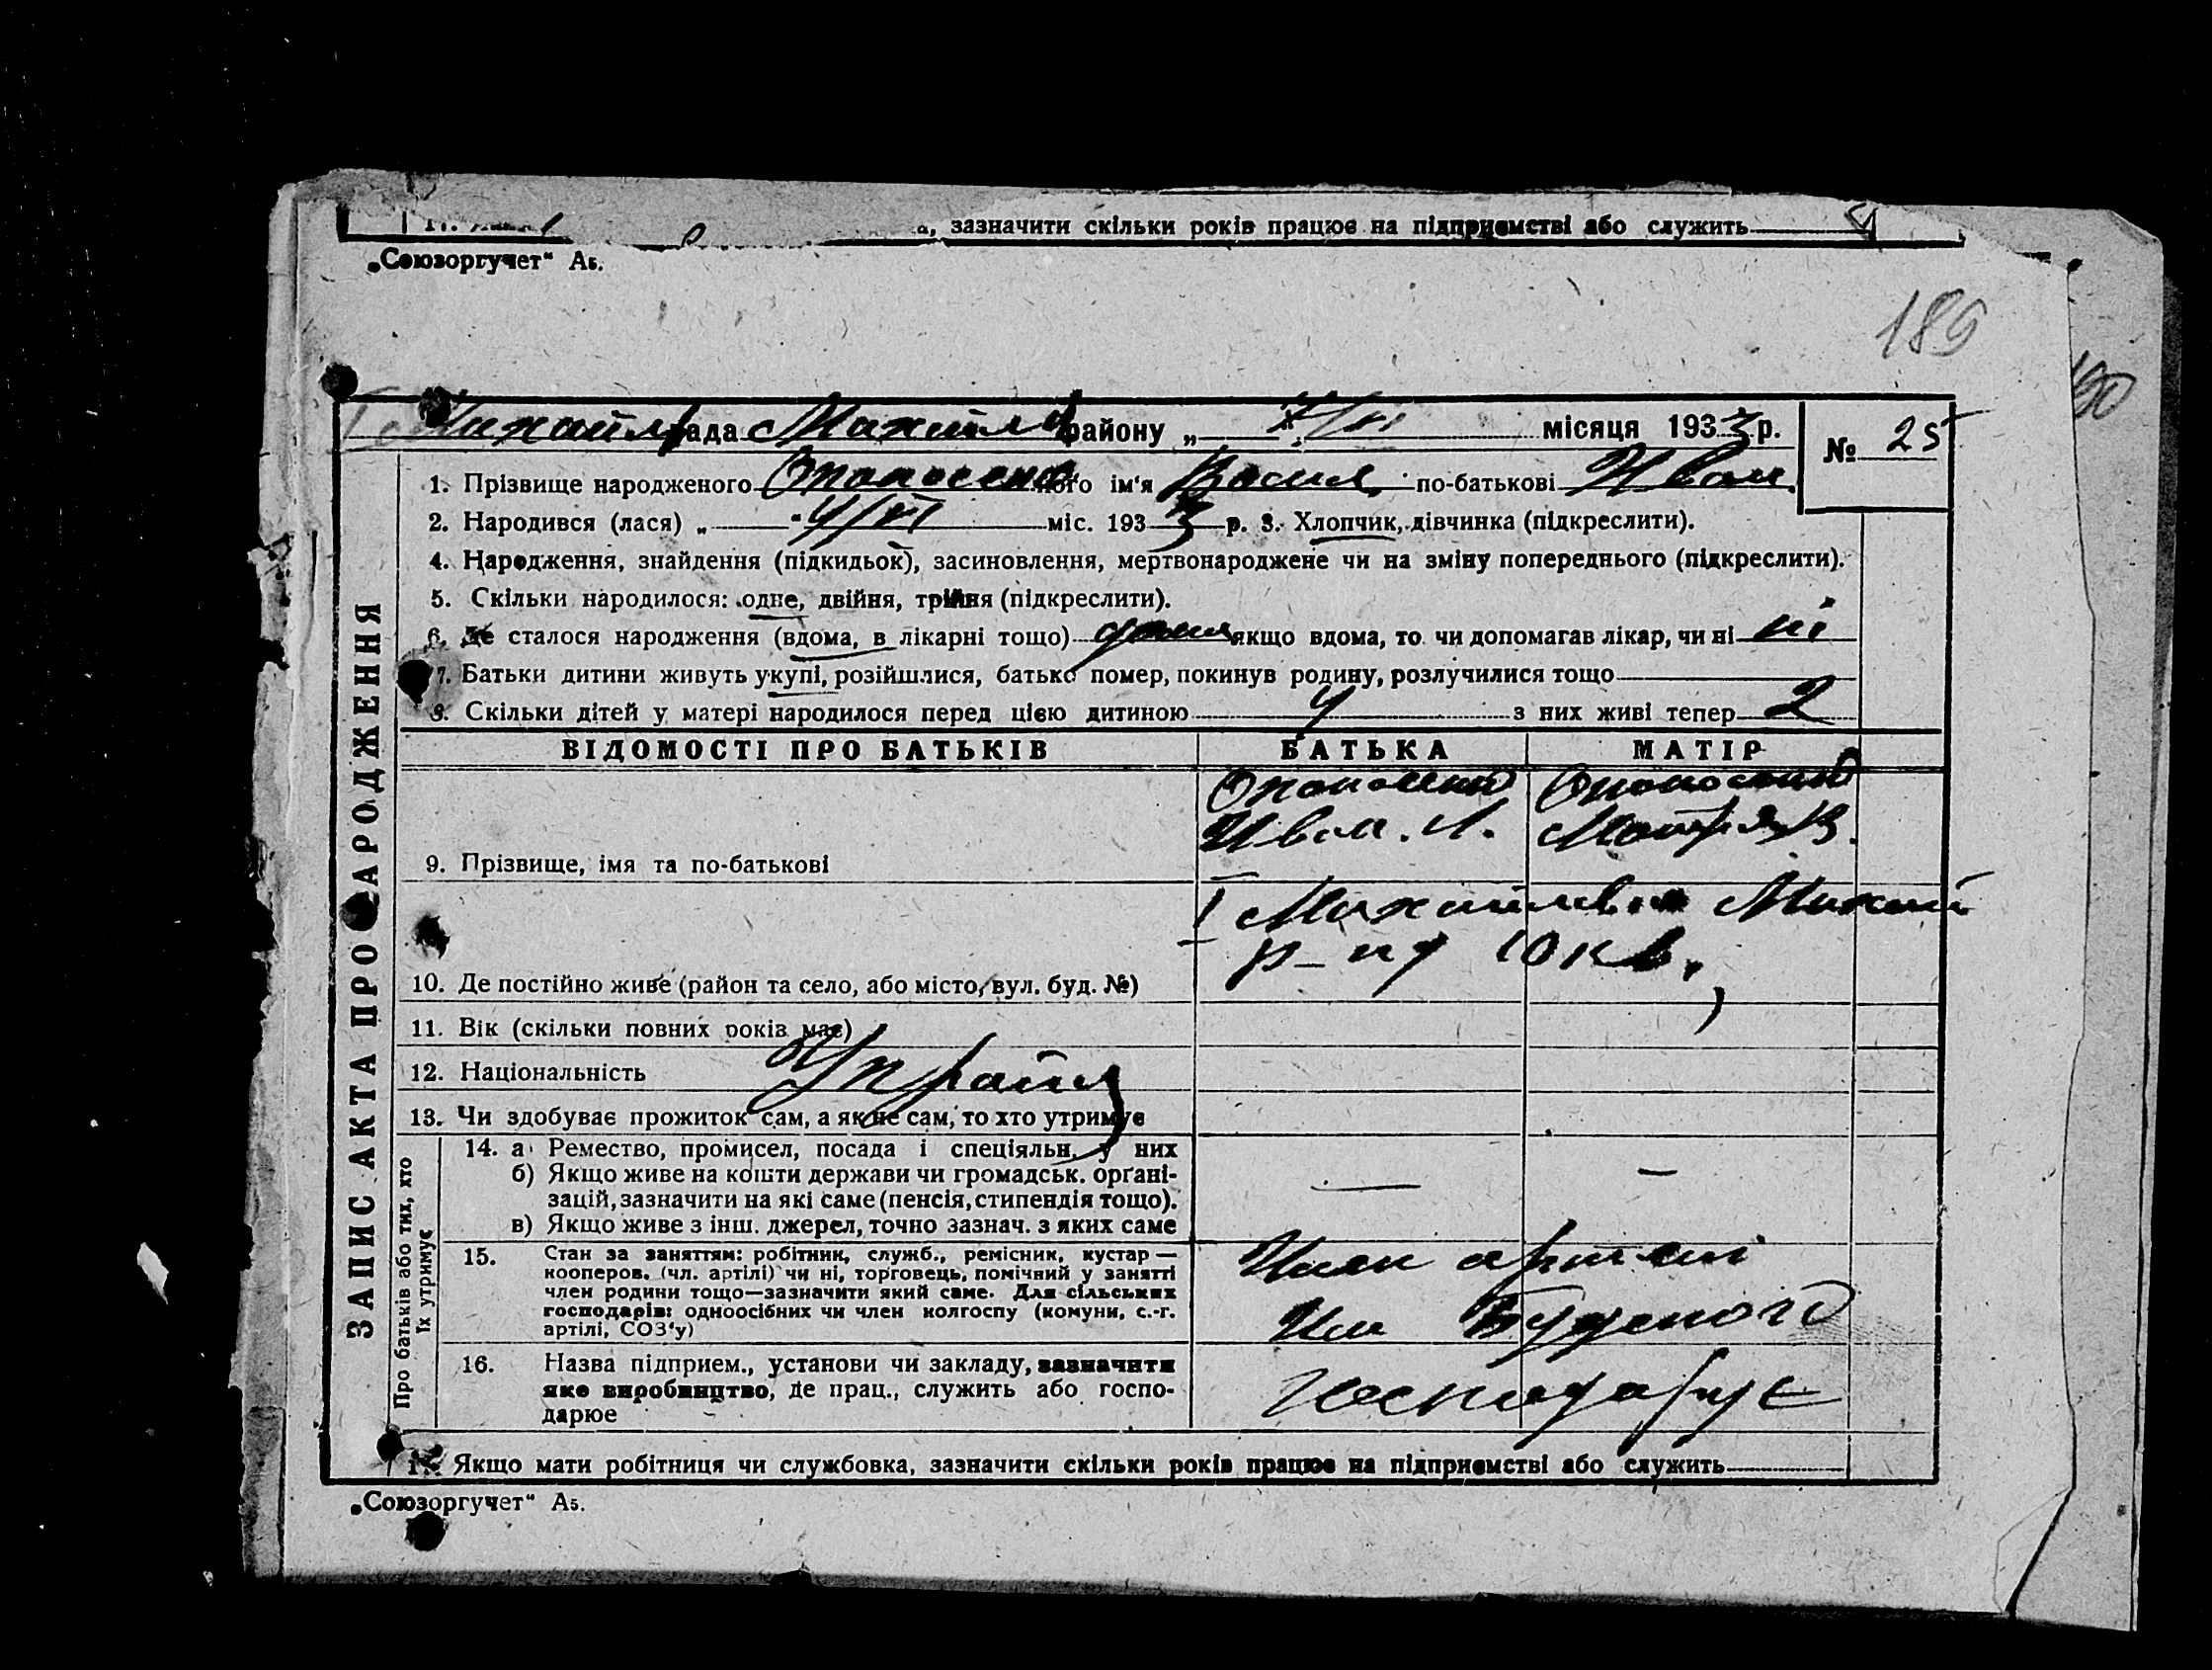 а, зазначити скільки років працює на підприємстві або служить
„Союзоргучет“ А5.
189
190
І Михайл рада Михайл району „ “ 7/VI місяця 1933 р. № 25
1. Прізвище народженого його ім'я Васил по-батькові Иван.
2. Народився (лася) „ “ 4/VI міс. 1933 р. 3. Хлопчик, дівчинка (підкреслити).
4. Народження, знайдення (підкидьок), засиновлення, мертвонароджене чи на зміну попереднього (підкреслити).
5. Скільки народилося: одне, двійня, трійня (підкреслити).
6. Де сталося народження (вдома, в лікарні тощо) дома якщо вдома, то чи допомагав лікар, чи ні ні
7. Батьки дитини живуть укупі, розійшлися, батько помер, покинув родину, розлучилися тощо
8. Скільки дітей у матері народилося перед цією дитиною 4 з них живі тепер 2
ВІДОМОСТІ ПРО БАТЬКІВ БАТЬКА МАТІР
Иван. Л. Мотря В.
9. Прізвище, імя та по-батькові
І Михайлів Михай
р-ну 10 кв.,
10. Де постійно живе (район та село, або місто, вул. буд. №)
11. Вік (скільки повних років має)
12. Національність Україн
13. Чи здобуває прожиток сам, а як не сам, то хто утримує
14. а) Ремество, промисел, посада і спеціяльн. у них
б) Якщо живе на кошти держави чи громадськ. орґані-
зацій, зазначити на які саме (пенсія, стипендія тощо). — —
в) Якщо живе з інш. джерел, точно зазнач. з яких саме
15. Стан за заняттям: робітник, служб., ремісник, кустар — Член артілі
кооперов. (чл. артілі) чи ні, торговець, помічний у занятті
член родини тощо—зазначити який саме. Для сільських
господарів: одноосібних чи член колгоспу (комуни, с.-г. Им Буденого
артілі, СОЗ'у)
16. Назва підприєм., установи чи закладу, зазначити
яке виробництво, де прац., служить або госпо- господарує
дарює
17. Якщо мати робітниця чи службовка, зазначити скільки років працює на підприємстві або служить
„Союзоргучет“ А5.
ЗАПИС АКТА ПРО НАРОДЖЕННЯ
Про батьків або тих, хто
їх утримує